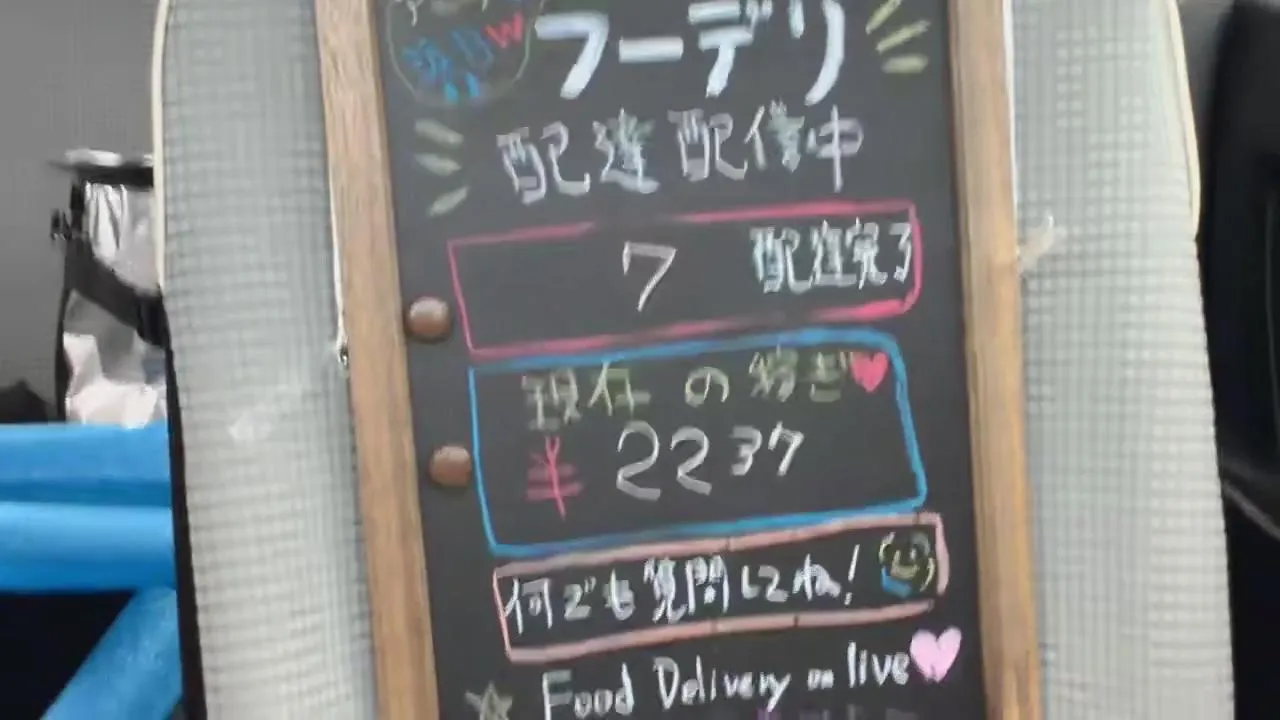 フーデリ
配達配信中
7 配達完了
現在の稼ぎ
¥ 2237
何でも質問してね!
Food Delivery on live